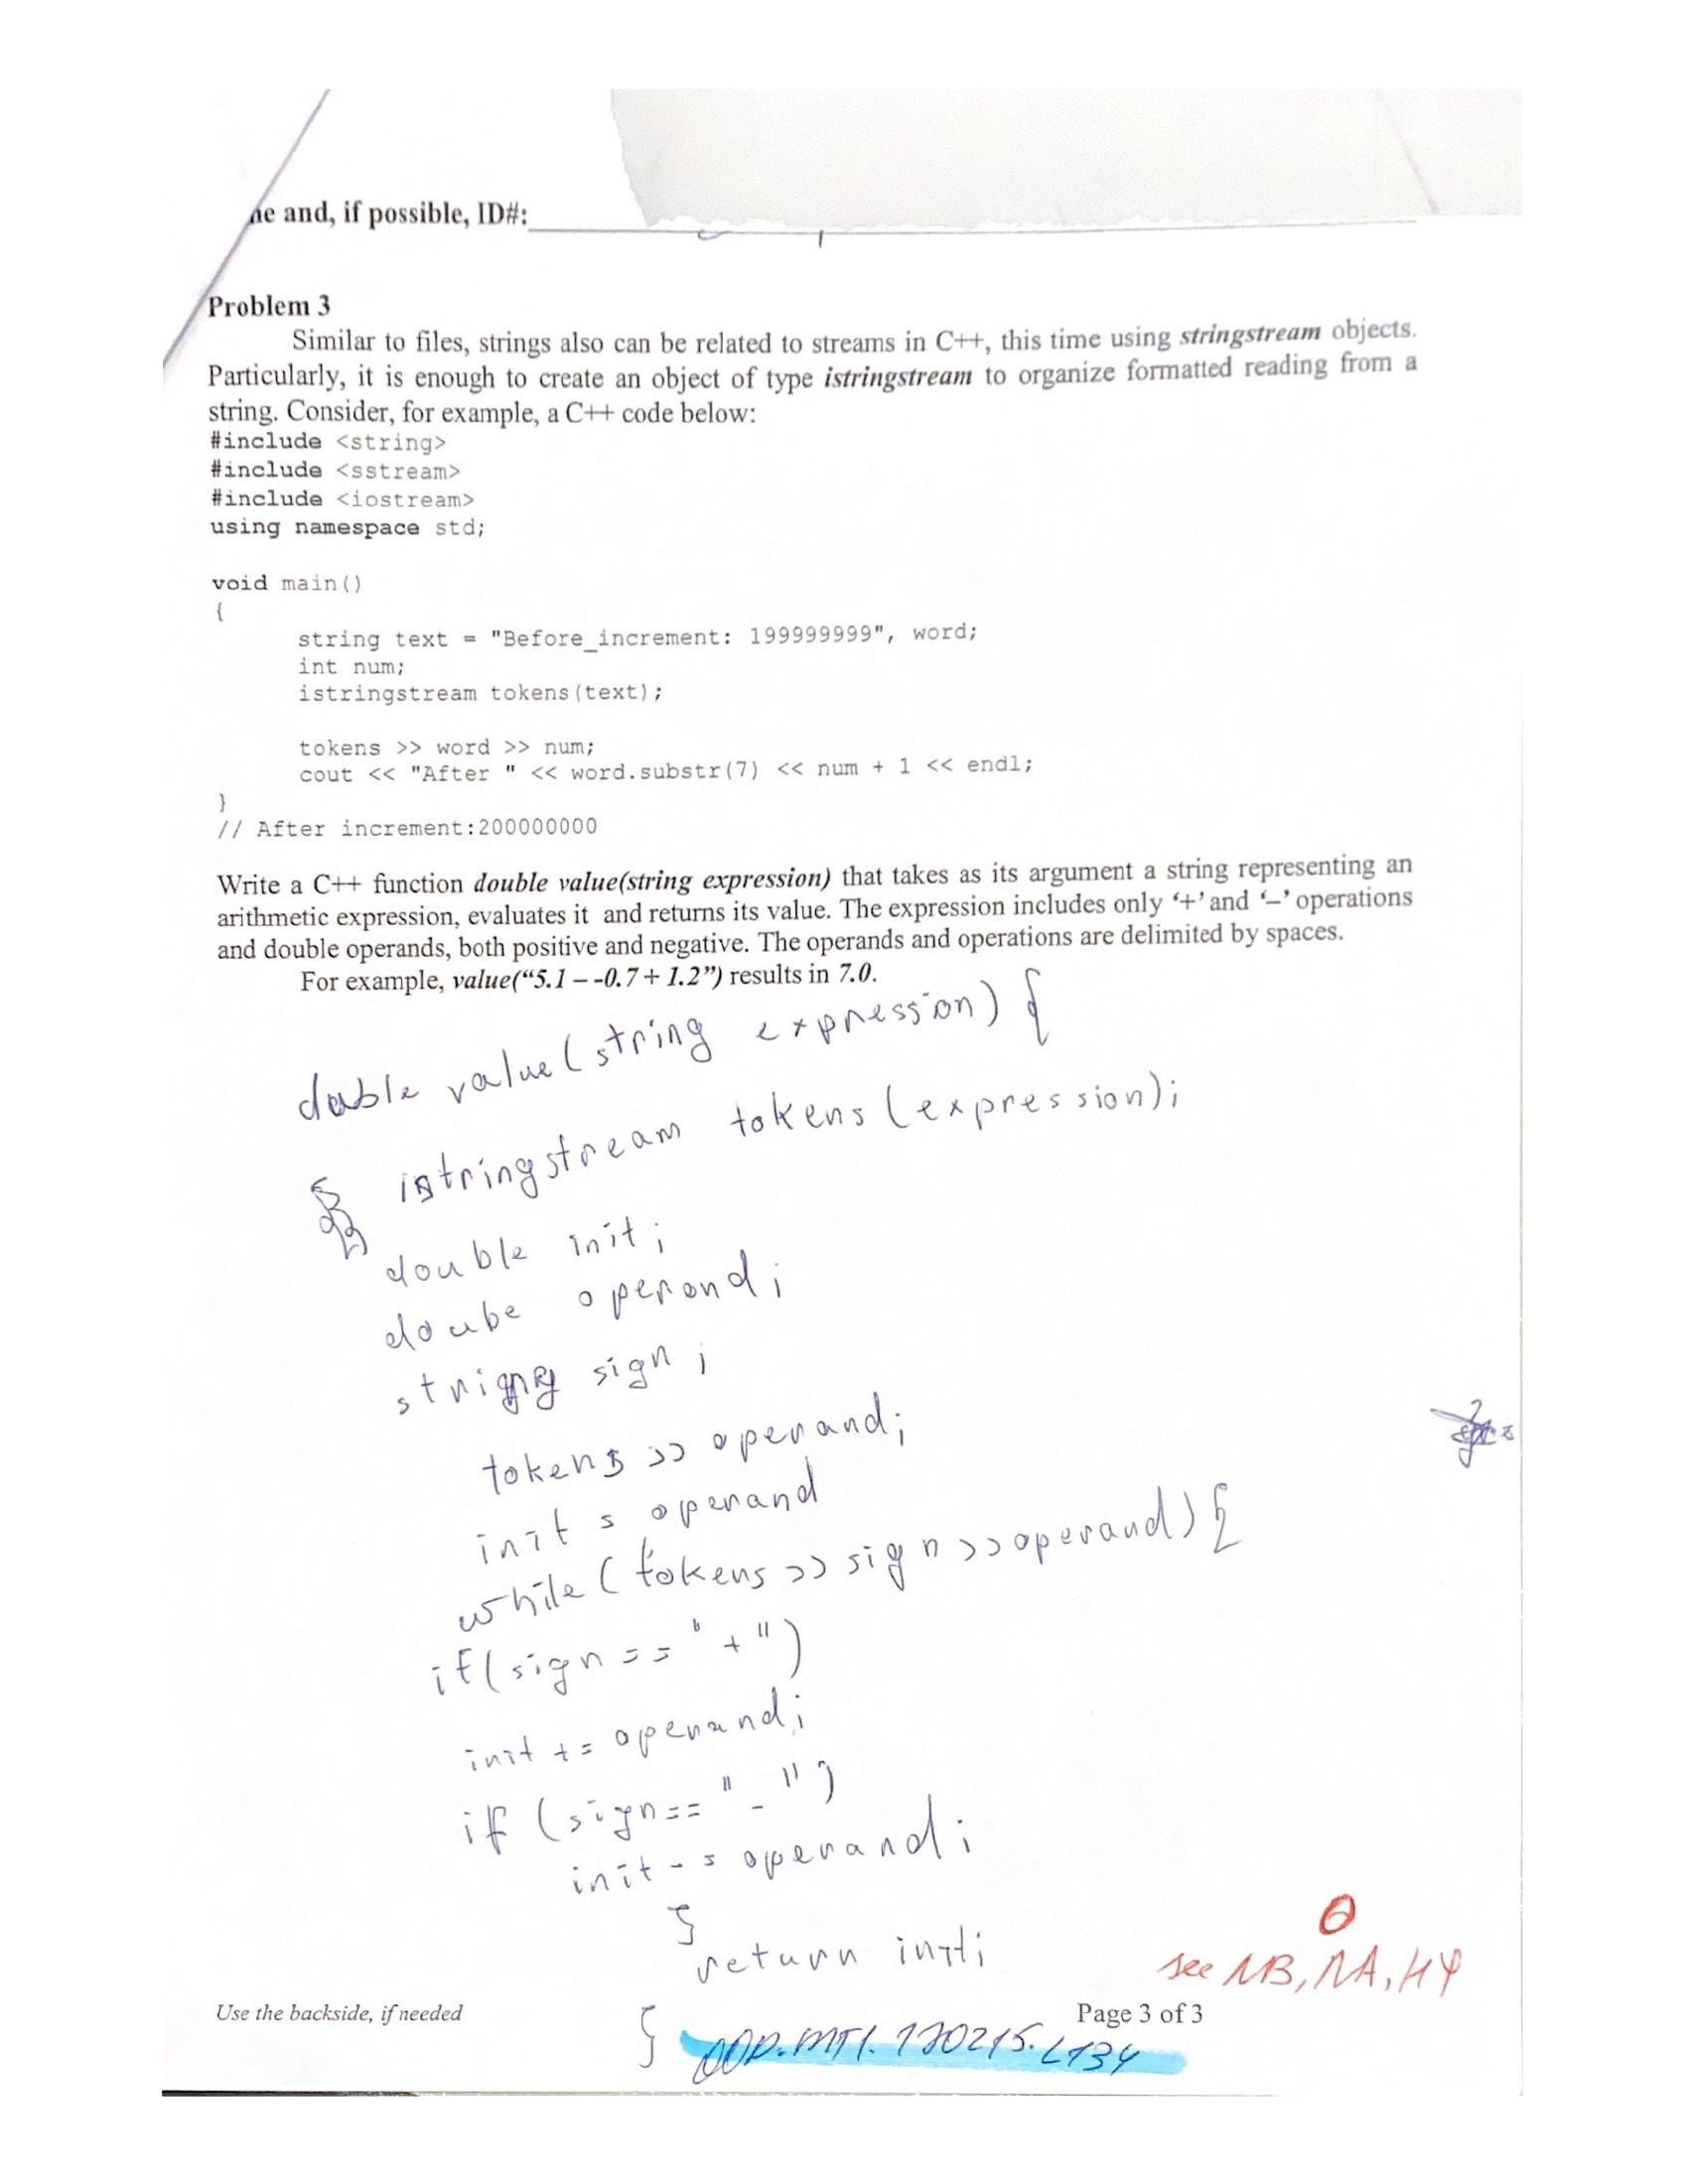 ne and, if possible, ID#:
Problem 3
Similar to files, strings also can be related to streams in C++, this time using stringstream objects.
Particularly, it is enough to create an object of type istringstream to organize formatted reading from a
string. Consider, for example, a C++ code below:
#include <string>
#include <sstream>
#include <iostream>
using namespace std;
void main()
{
string text = "Before_increment: 199999999", word;
int num;
istringstream tokens(text);
tokens >> word >> num;
cout << "After " << word.substr(7) << num + 1 << endl;
}
// After increment:200000000
Write a C++ function double value(string expression) that takes as its argument a string representing an
arithmetic expression, evaluates it and returns its value. The expression includes only ‘+’ and ‘–’ operations
and double operands, both positive and negative. The operands and operations are delimited by spaces.
For example, value(“5.1 – -0.7 + 1.2”) results in 7.0.
double value(string expression) {
istringstream tokens (expression);
double init;
doube operand;
string sign;
tokens >> operand;
init = operand
while (tokens >> sign >> operand) {
if(sign == "+")
init += operand;
if (sign == "-")
init -= operand;
}
return init;
}
see
Use the backside, if needed
Page 3 of 3